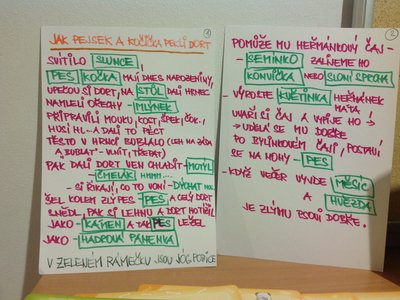 1
JAK PEJSEK A KOČIČKA PEKLI DORT
SVÍTILO SLUNCE,
PES KOČKA MAJÍ DNES NAROZENINY,
UPEČOU SI DORT, NA STŮL DALI HRNEC
NAMLELI OŘECHY - MLÝNEK
PŘIPRAVILI MOUKU, KOST, ŠPEK, ČOK.,
HUSÍ HL... A DALI TO PÉCT
TĚSTO V HRNCI BUBLALO (LEH NA ZÁDA
A "BUBLAT" - VLNIT, TŘEPAT)
PAK DALI DORT VEN CHLADIT - MOTÝL
- ČMELÁK HMMM....
- SI ŘÍKAJÍ, CO TO VONÍ - DÝCHAT NOS.
ŠEL KOLEM ZLÝ PES - PES A CELÝ DORT
SNĚDL, PAK SI LEHNUL A DORT HO TÍŽIL
JAKO - KÁMEN A TAK PES LEŽEL
JAKO - HADROVÁ PANENKA
V ZELENÉM RÁMEČKU JSOU JÓG. POZICE
2
POMŮŽE MU HEŘMÁNKOVÝ ČAJ -
- SEMÍNKO ZALIJEME HO
KONVIČKA NEBO SLONÍ SPRCHA
- VYROSTE KVĚTINKA HEŘMÁNEK
MÁTA
UVAŘÍ SI ČAJ A VYPIJE HO!
→ UDĚLÁ SE MU DOBŘE
PO BYLINKOVÉM ČAJI, POSTAVÍ
SE NA NOHY - PES
- KDYŽ VEČER VYJDE MĚSÍC
A HVĚZDA
JE ZLÝMU PSOVI DOBŘE.